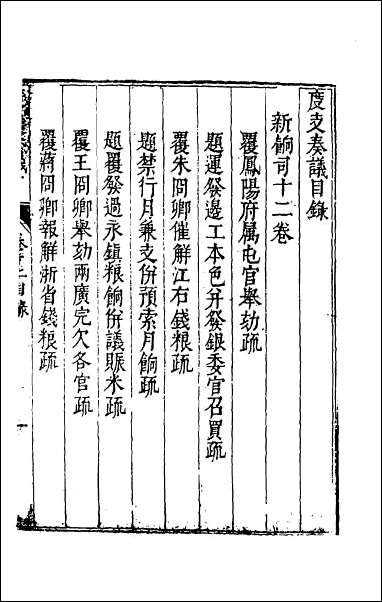 度支奏議目錄
新餉司十二卷
覆鳳陽府属屯官舉劾疏
題運發邊工本色并發銀委官召買疏
覆朱冏卿催解江右錢粮疏
題禁行月兼支併預索月餉疏
題覆發過永鎮粮餉併議賑米疏
覆王冏卿舉劾兩廣完欠各官疏
覆蔣冏卿報解浙省錢粮疏